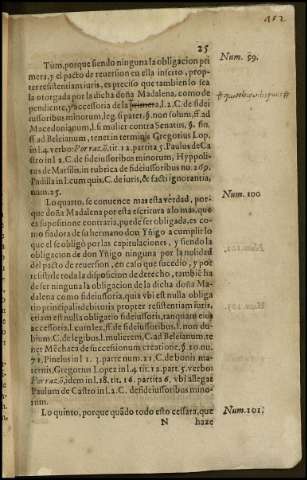 152
25
Tũm, porque siendo ninguna la obligacion pri
mera, y el pacto de reuersion en ella inserto, prop-
ter resistentiam iuris, es preciso que tambien lo sea
la otorgada por la dicha doña Madalena, como de
pendente, y accessoria de la primera, l. 2. C. de fidei
iussoribus minorum, leg. si pater, §. non solum, ff. ad
Macedonianum, l. si mulier contra Senatus, §. fin.
ff. ad Beleianum, tenet in terminis Gregorius Lop.
in l. 4. verbo: Por razõ, tit. 12. partita 5. Paulus de Ca
stro in l. 2. C. de fideiussoribus minorum, Hyppoli-
tus de Marsilis, in rubrica de fideiussoribus nu. 269.
Padilla in l. cum quis, C. de iuris, & facti ignorantia,
num. 25.
Lo quarto, se conuence mas esta verdad, por-
que doña Madalena por esta escritura a lo mas, que
es supositione contraria, puede ser obligada, es co-
mo fiadora de su hermano don Yñigo a cumplir lo
que el se obligò por las capitulaciones, y siendo la
obligacion de don Yñigo ninguna por la nulidad
del pacto de reuersion, en calo que sucediò, y por
resistirle toda la disposicion de derecho, tambiẽ ha
de ser ninguna la obligacion de la dicha doña Ma-
dalena como fideiussoria, quia vbi est nulla obliga
tio principalis debitoris propter resistentiam iuris,
etiam est nulla obligatio fideiussoris, tanquam eius
accessoria, l. cum lex, ff. de fideiussoribus, l. non du-
bium, C. de legibus, l. mulierem, C. ad Beleianum, te
net Mèchaca de successionum creatione, §. 10. nu.
71. Pinelus in l. 3. parte num. 21. C. de bonis ma-
ternis, Gregorius Lopez in l. 4. tit. 12. part. 5. verbo:
Por razõ, idem in l. 18. tit. 16. partita 6. vbi allegat
Paulum de Castro in l. 2. C. de fideiussoribus mino-
rum.
Lo quinto, porque quãdo todo esto cessara, que
N haze
Num. 99.
Num. 100
Num. 101.